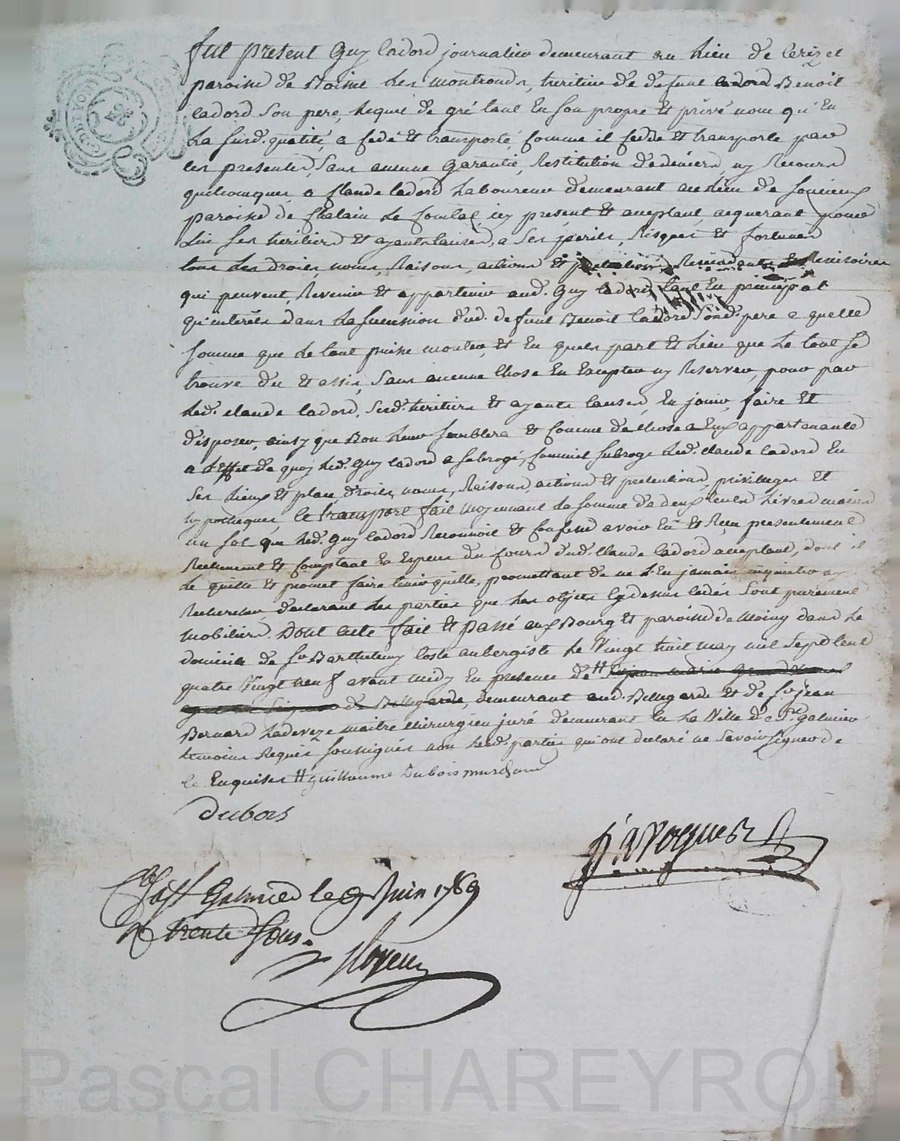 fut present Guy Cadord journalier demeurant au Lieu de
paroisse de Boisset Les montrond, heritier de defunt Cadord Benoit
Cadord son pere, lequel de gré tant En son propre et privé nom qu'En
La susd. qualité, a cedé et transporté, comme il cedde et transporte par
ces presentes, sans aucune garantie, Restitution de deniers, ny Recours
quelconques, a Claude Cadord Laboureur demeurant au lieu de
paroisse de Chalain Le Comtal icy present et acceptant, acquerant pour
Lui ses heritiers et ayants causes, a ses perils, Risques et fortunes
tous les droits, noms, Raisons, actions et pretentions Rescindants et Rescisoires
qui peuvent Revenir et appartenir aud. Guy Cadord tant En principal
qu'interets dans La sucession dud. defunt Benoit Cadord sond. pere a quelle
somme que Le tout puisse monter, et En quels part et Lieu que Le tout se
trouve du et assis, sans aucune chose En Excepter ny Reserver, pour par
led. Claude Cadord, sesd. heritiers et ayants causes En jouir, faire et
disposer, ainsy que Bon leur semblera et comme de chose a Eux appartenante
a L'Effet de quoy led. Guy Cadord a subrogé, comme il subroge led. Claude Cadord En
ses Lieux et place, droits, noms, Raisons, actions et pretentions, privileges et
hypotheques Le transport fait moyennant La somme de deux cents Livres moins
un sol que led. Guy Cadord Reconnoit et confesse avoir Eu et Reçu presentement
Reellement et comptant En Especes du cours dud. Claude Cadord acceptant, dont il
Le quitte et promet faire tenir quitte, promettant de ne L'En jamais inquieter ny
Rechercher declarant Les parties que Les objets cy dessus cedés sont purement
mobiliers Dont acte fait et passé aux Bourg et paroisse de Moing dans Le
domicile de sr. Barthelemy Coste aubergiste Le Vingt huit may mil sept cent
quatre Vingt neuf avant midy En presence de H
de Bellegarde, demeurant aud Bellegarde et de sr. jean
Bernard Ladeveze maitre chirurgien juré demeurant En La Ville de St. Galmier
temoins Requis soussignés non lesd. parties qui ont declaré ne savoir signer de
ce Enquises H guillaume Dubois marchand
dubois
St Galmier le 9 Juin 1789
R trente sous.
Pascal CHAREYRON